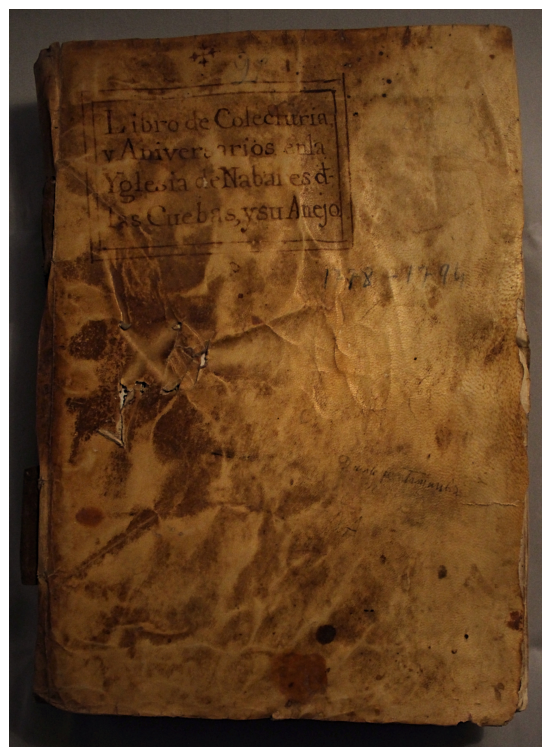 Libro de Colecturia,
y Aniversarios en la
Yglesia de Nabares d-
las Cuebas, y su Anejo